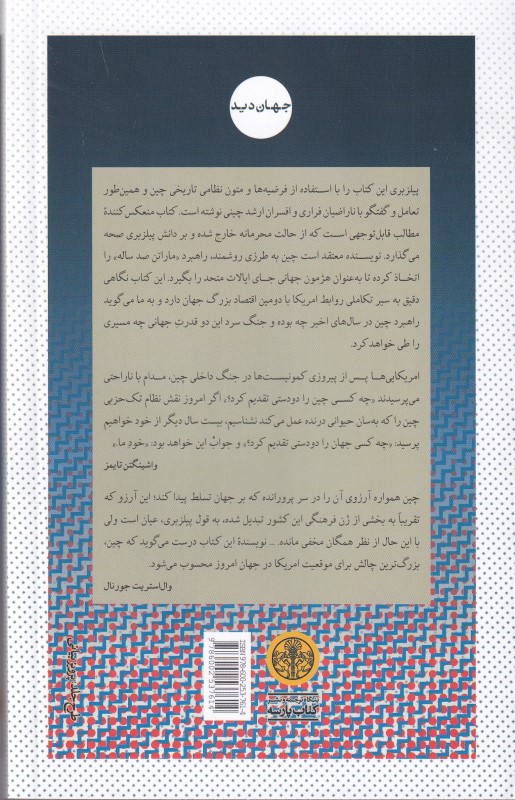 جهان‌دید
پیلزبری این کتاب را با استفاده از فرضیه‌ها و متون نظامی تاریخی چین و همین‌طور
تعامل و گفتگو با ناراضیان فراری و افسران ارشد چینی نوشته است. کتاب منعکس کنندۀ
مطالب قابل‌توجهی است که از حالت محرمانه خارج شده و بر دانش پیلزبری صحه
می‌گذارد. نویسنده معتقد است چین به طرزی روشمند، راهبرد «ماراتن صد ساله» را
اتخاذ کرده تا به‌عنوان هژمون جهانی جای ایالات متحد را بگیرد. این کتاب نگاهی
دقیق به سیر تکاملی روابط امریکا با دومین اقتصاد بزرگ جهان دارد و به ما می‌گوید
راهبرد چین در سال‌های اخیر چه بوده و جنگ سرد این دو قدرتِ جهانی چه مسیری
را طی خواهد کرد.
امریکایی‌ها پس از پیروزی کمونیست‌ها در جنگ داخلی چین، مدام با ناراحتی
می‌پرسیدند «چه کسی چین را دودستی تقدیم کرد؟» اگر امروز نقش نظام تک‌حزبی
چین را که به‌سان حیوانی درنده عمل می‌کند نشناسیم، بیست سال دیگر از خود خواهیم
پرسید: «چه کسی جهان را دودستی تقدیم کرد؟» و جوابْ این خواهد بود: «خودِ ما.»
واشینگتن تایمز
چین همواره آرزوی آن را در سر پرورانده که بر جهان تسلط پیدا کند؛ این آرزو که
تقریباً به بخشی از ژن فرهنگی این کشور تبدیل شده، به قول پیلزبری، عیان است ولی
با این حال از نظر همگان مخفی مانده. ... نویسندۀ این کتاب درست می‌گوید که چین،
بزرگ‌ترین چالش برای موقعیت امریکا در جهان امروز محسوب می‌شود.
وال‌استریت جورنال
ISBN 978-600-253-761-4
9 786002 537614
کتاب پارسه